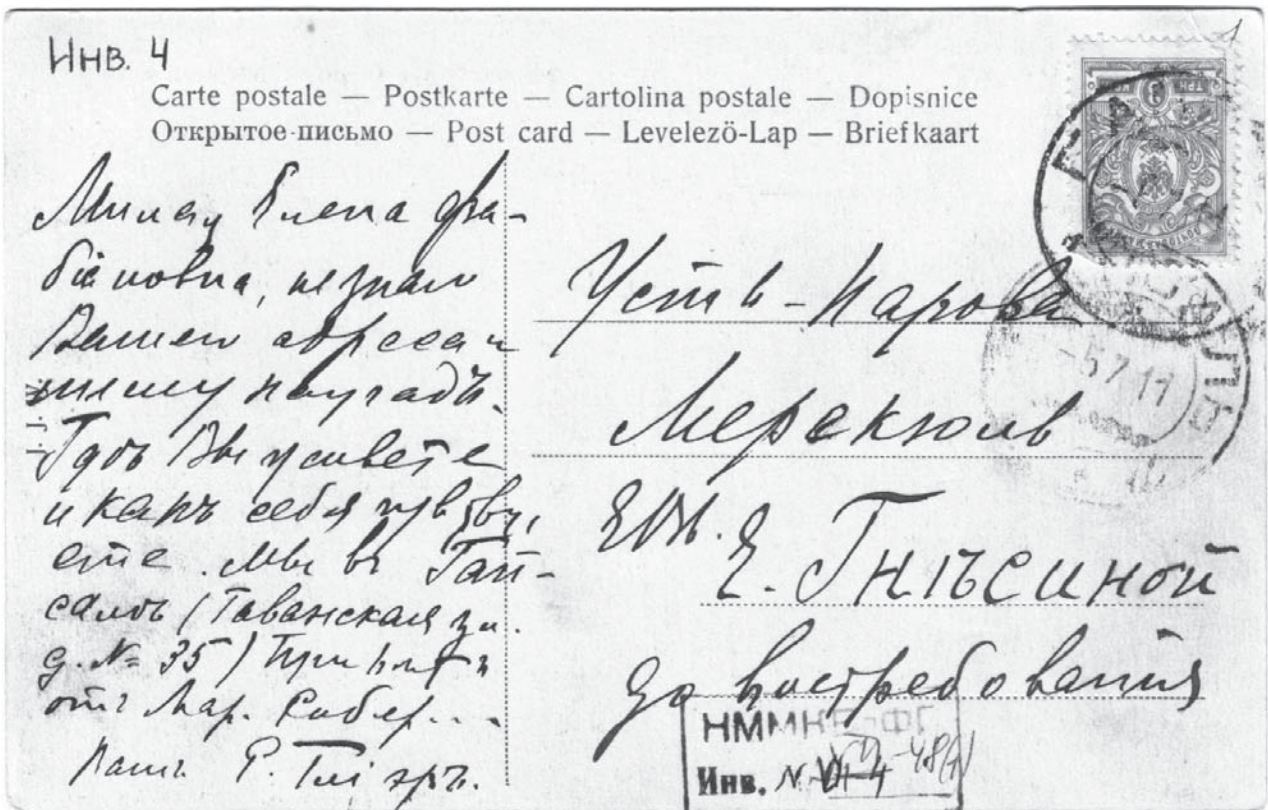 Инв. 4
Carte postale — Postkarte — Cartolina postale — Dopisnice
Открытое письмо — Post card — Levelező-Lap — Briefkaart
Милая Елена Фа-
біановна, не знаю
Вашего адреса и
пишу наугадъ.
Гдѣ Вы живете
и какъ себя чувству,
ете. Мы въ Гап-
салѣ (Гаванская ул.
д. № 35) Приветъ
отъ Мар. Робер...
Вашъ Р. Глі эръ.
Усть-Нарова
Мерекюль
ЕВ.
Е. Гнѣсиной
до востребованія
ТРИ
3
-5.7.11
НММНЕ-ФГ
Инв. №